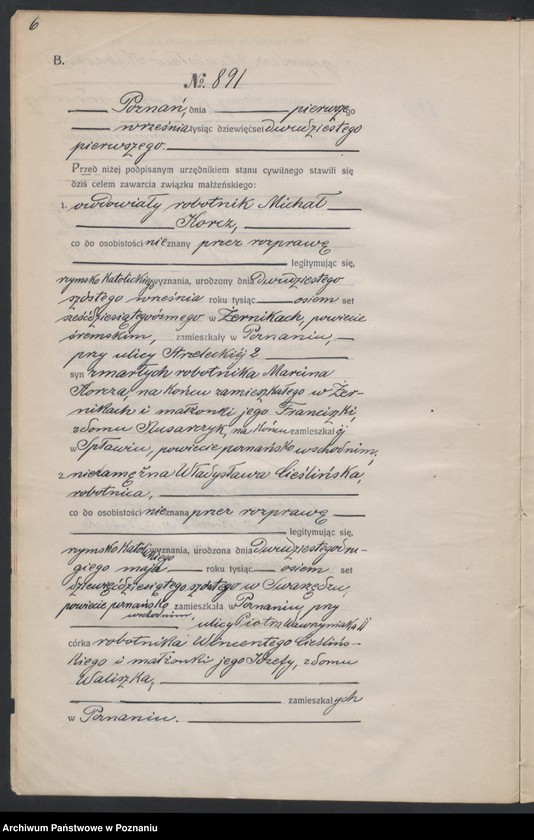 6
B.
No. 891
Poznań, dnia pierwszego
września tysiąc dziewięćset dwudziestego
pierwszego.
Przed niżej podpisanym urzędnikiem stanu cywilnego stawili się
dziś celem zawarcia związku małżeńskiego:
1. owdowiały robotnik Michał
Korcz,
co do osobistości nieznany przez rozprawę
legitymując się,
rzymsko katolickiego wyznania, urodzony dnia dwudziestego
szóstego września roku tysiąc osiem set
sześćdziesiątego ósmego w Żernikach, powiecie
śremskim, zamieszkały w Poznaniu,
przy ulicy Strzeleckiej 2
syn zmarłych robotnika Marcina
Korcza, na końcu zamieszkałego w Żer-
nikach i małżonki jego Franciszki,
z domu na końcu zamieszkałej
w Spławiu, powiecie poznańsko wschodnim,
2. niezamężna Władysława Cieślińska,
robotnica,
co do osobistości nieznana przez rozprawę
legitymując się,
rzymsko katolickiego wyznania, urodzona dnia dwudziestego dru-
giego maja roku tysiąc osiem set
dziewięćdziesiątego szóstego w Swarzędzu,
powiecie poznańsko wschodnim, zamieszkała w Poznaniu, przy
ulicy Piotra Wawrzyniaka 11
córka robotnika Wincentego Cieśliń-
skiego i małżonki jego Józefy, z domu
Waliszka,
zamieszkałych
w Poznaniu.
Archiwum Państwowe w Poznaniu